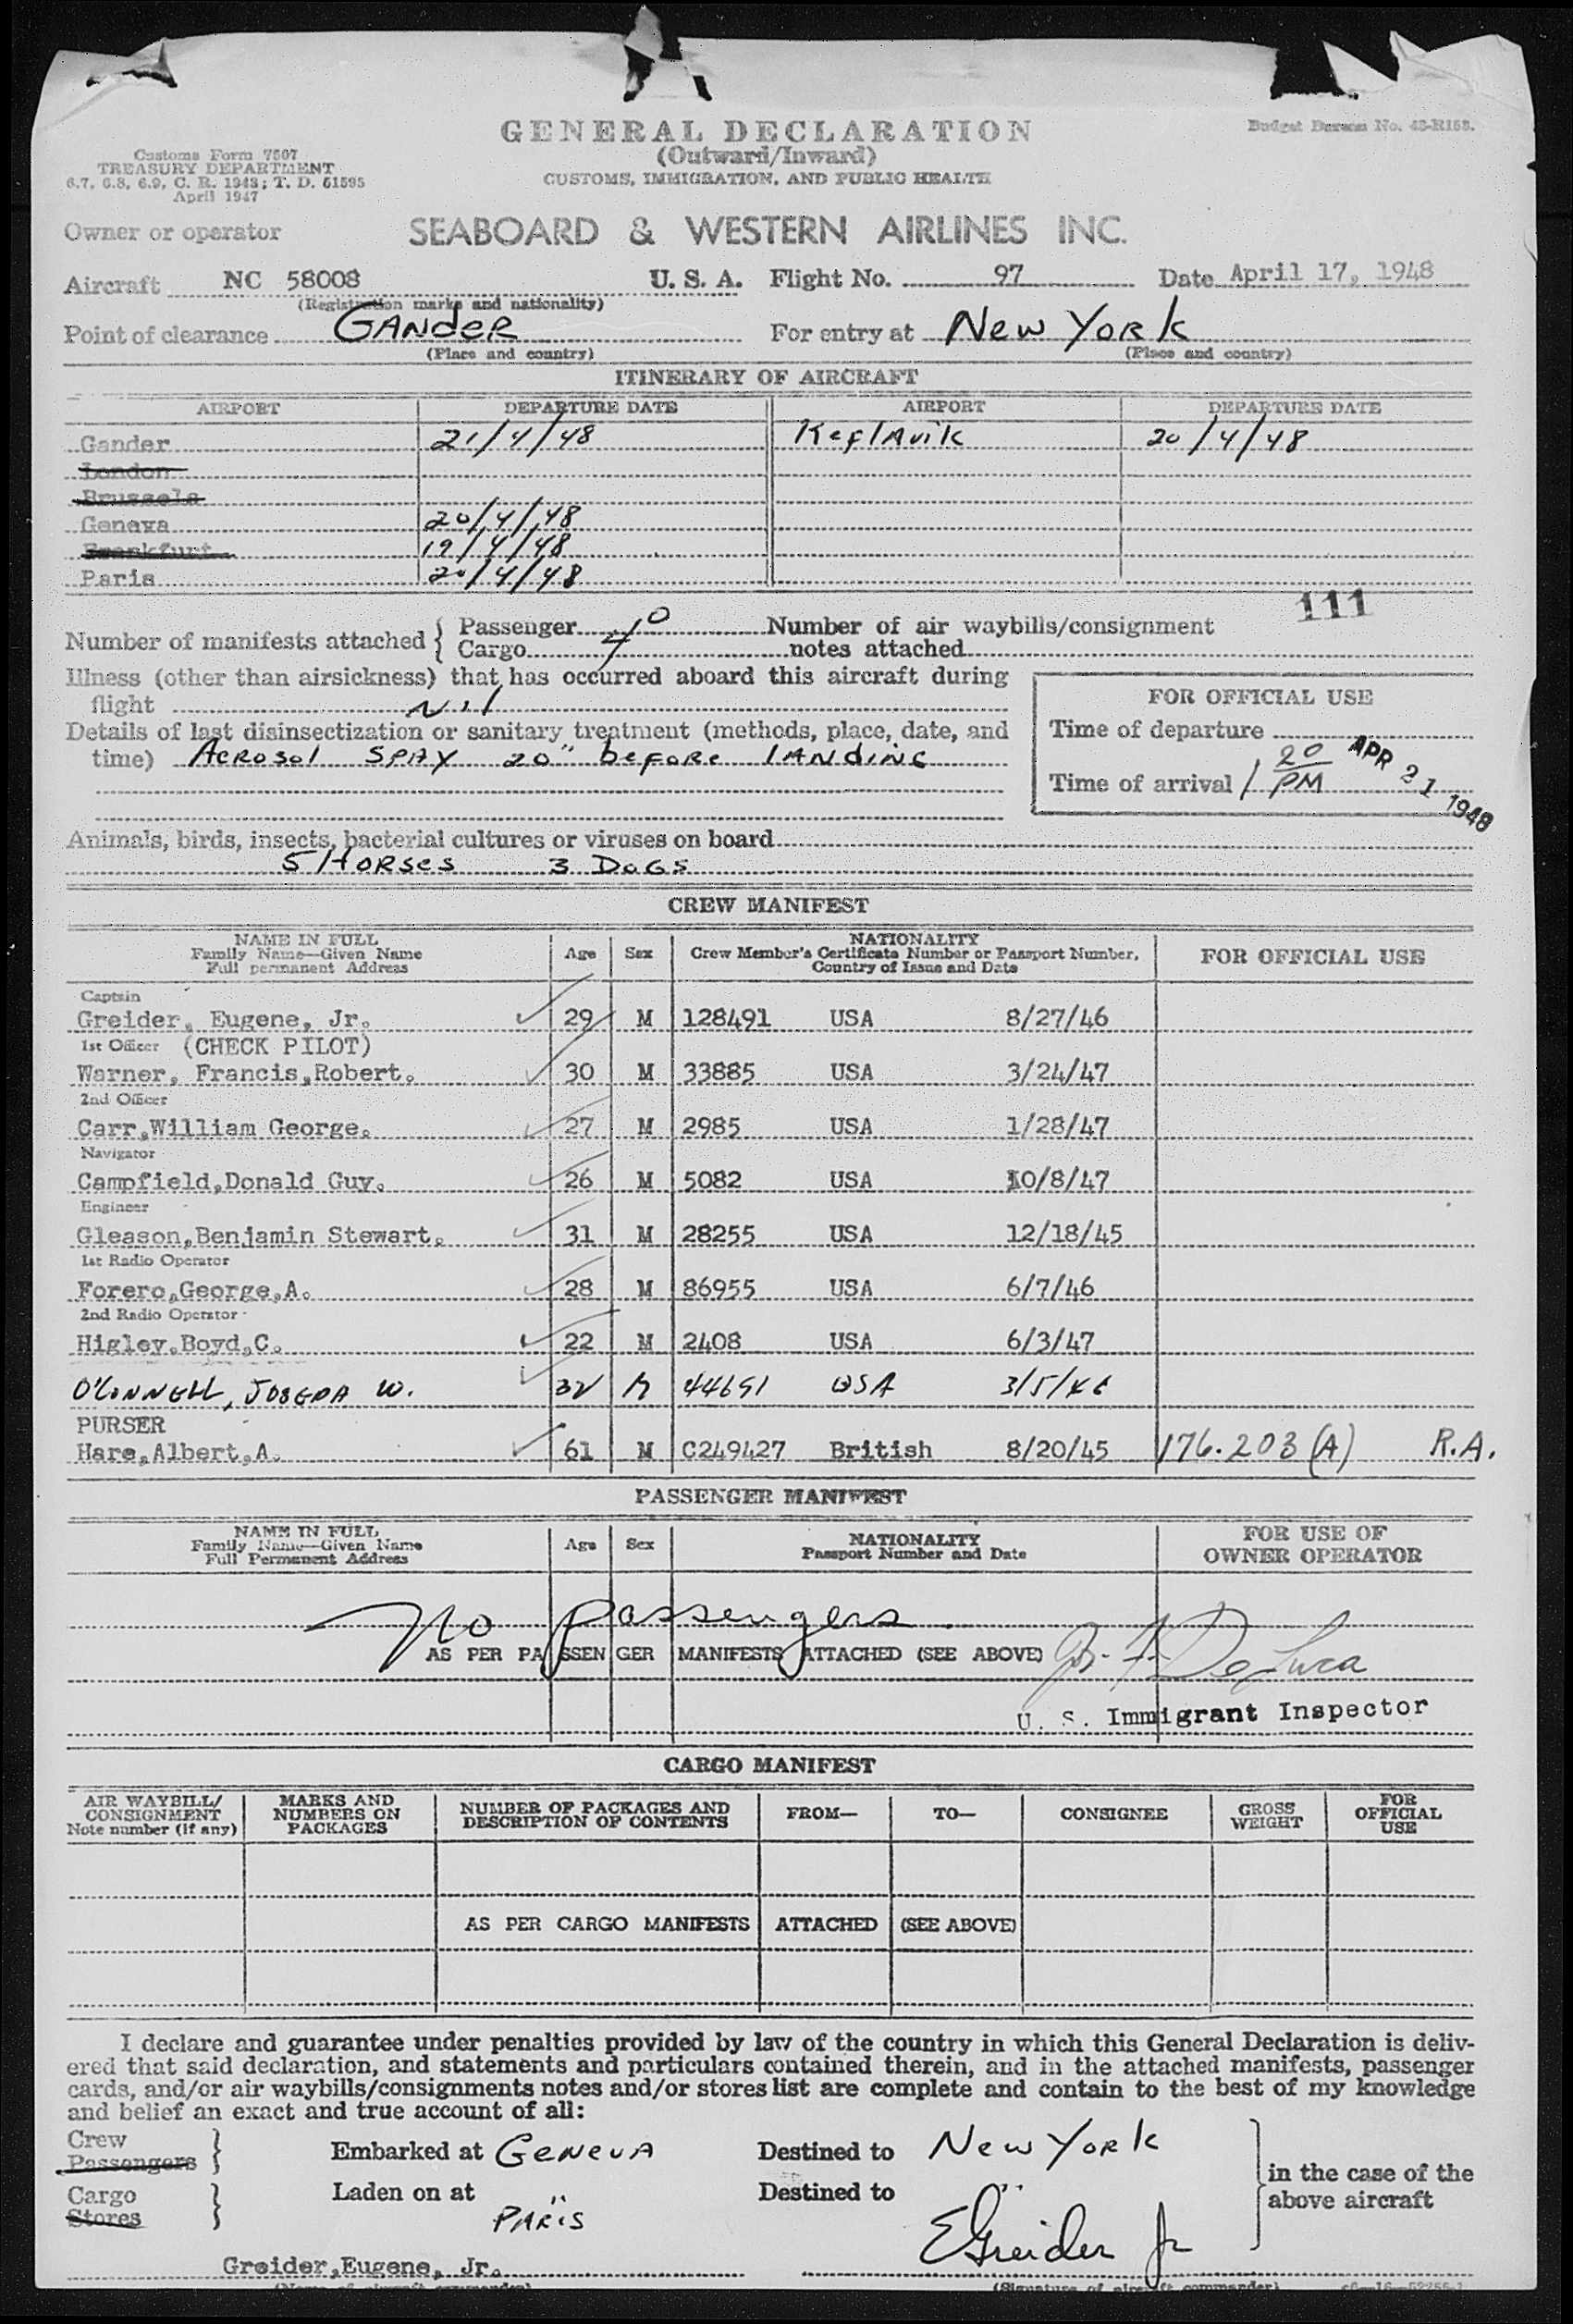 GENERAL DECLARATION
(Outward/Inward)
CUSTOMS, IMMIGRATION, AND PUBLIC HEALTH
Budget Bureau No. 43-R153.
Customs Form 7507
TREASURY DEPARTMENT
6.7, 6.8, 6.9, C. R. 1943; T. D. 51595
April 1947
Owner or operator SEABOARD & WESTERN AIRLINES INC.
Aircraft NC 58008 U. S. A. Flight No. 97 Date April 17, 1948
(Registration marks and nationality)
Point of clearance GANDER For entry at New York
(Place and country) (Place and country)
ITINERARY OF AIRCRAFT
AIRPORT DEPARTURE DATE AIRPORT DEPARTURE DATE
Gander 21/4/48 Keflavik 20/4/48
London
Brussels
Geneva 20/4/48
Frankfurt 19/4/48
Paris 20/4/48
111
Number of manifests attached { Passenger 0 Number of air waybills/consignment
Cargo 7 notes attached
Illness (other than airsickness) that has occurred aboard this aircraft during
flight Nil
Details of last disinsectization or sanitary treatment (methods, place, date, and
time) Aerosol SPAY 20" before LANDING
FOR OFFICIAL USE
Time of departure
Time of arrival 1 20 PM APR 21 1948
Animals, birds, insects, bacterial cultures or viruses on board
5 Horses 3 DOGS
CREW MANIFEST
NAME IN FULL
Family Name—Given Name
Full permanent Address
Age Sex
NATIONALITY
Crew Member's Certificate Number or Passport Number,
Country of Issue and Date
FOR OFFICIAL USE
Captain
Greider, Eugene, Jr. 29 M 128491 USA 8/27/46
1st Officer (CHECK PILOT)
Warner, Francis,Robert. 30 M 33885 USA 3/24/47
2nd Officer
Carr,William George. 27 M 2985 USA 1/28/47
Navigator
Campfield,Donald Guy. 26 M 5082 USA 10/8/47
Engineer
Gleason,Benjamin Stewart. 31 M 28255 USA 12/18/45
1st Radio Operator
Forero,George,A. 28 M 86955 USA 6/7/46
2nd Radio Operator
Higley,Boyd,C. 22 M 2408 USA 6/3/47
O'CONNELL, JOSEPH W. 32 M 44651 USA 3/5/46
PURSER
Hare,Albert,A. 61 M C249427 British 8/20/45 176.203 (A) R.A.
PASSENGER MANIFEST
NAME IN FULL
Family Name—Given Name
Full Permanent Address
Age Sex
NATIONALITY
Passport Number and Date
FOR USE OF
OWNER OPERATOR
No passengers
AS PER PASSENGER MANIFESTS ATTACHED (SEE ABOVE)
De Luca
U. S. Immigrant Inspector
CARGO MANIFEST
AIR WAYBILL/
CONSIGNMENT
Note number (if any)
MARKS AND
NUMBERS ON
PACKAGES
NUMBER OF PACKAGES AND
DESCRIPTION OF CONTENTS
FROM— TO— CONSIGNEE
GROSS
WEIGHT
FOR
OFFICIAL
USE
AS PER CARGO MANIFESTS ATTACHED (SEE ABOVE)
I declare and guarantee under penalties provided by law of the country in which this General Declaration is deliv-
ered that said declaration, and statements and particulars contained therein, and in the attached manifests, passenger
cards, and/or air waybills/consignments notes and/or stores list are complete and contain to the best of my knowledge
and belief an exact and true account of all:
Crew
Passengers } Embarked at GENEVA Destined to New York
Cargo
Stores } Laden on at " Destined to "
PARIS
in the case of the
above aircraft
EGreider Jr
Greider,Eugene, Jr.
(Name of aircraft commander) (Signature of aircraft commander)